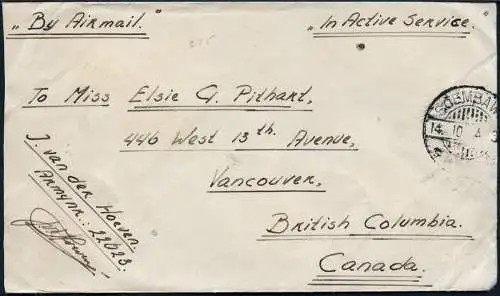 „By Airmail."
„In Active Service."
To Miss Elsie G. Pithart,
446 West 13th Avenue,
Vancouver,
British Columbia.
Canada.
J. van der Hoeven.
Armynr.: 22023.
SOEMBAW
14. 10